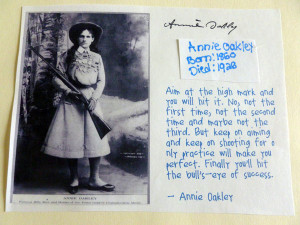 Annie Oakley
Annie Oakley
Born: 1860
Died: 1926
Aim at the high mark and
you will hit it. No, not the
first time, not the second
time and maybe not the
third. But keep on aiming
and keep on shooting for o
nly practice will make you
perfect. Finally you'll hit
the bull's-eye of success.
— Annie Oakley
ANNIE OAKLEY